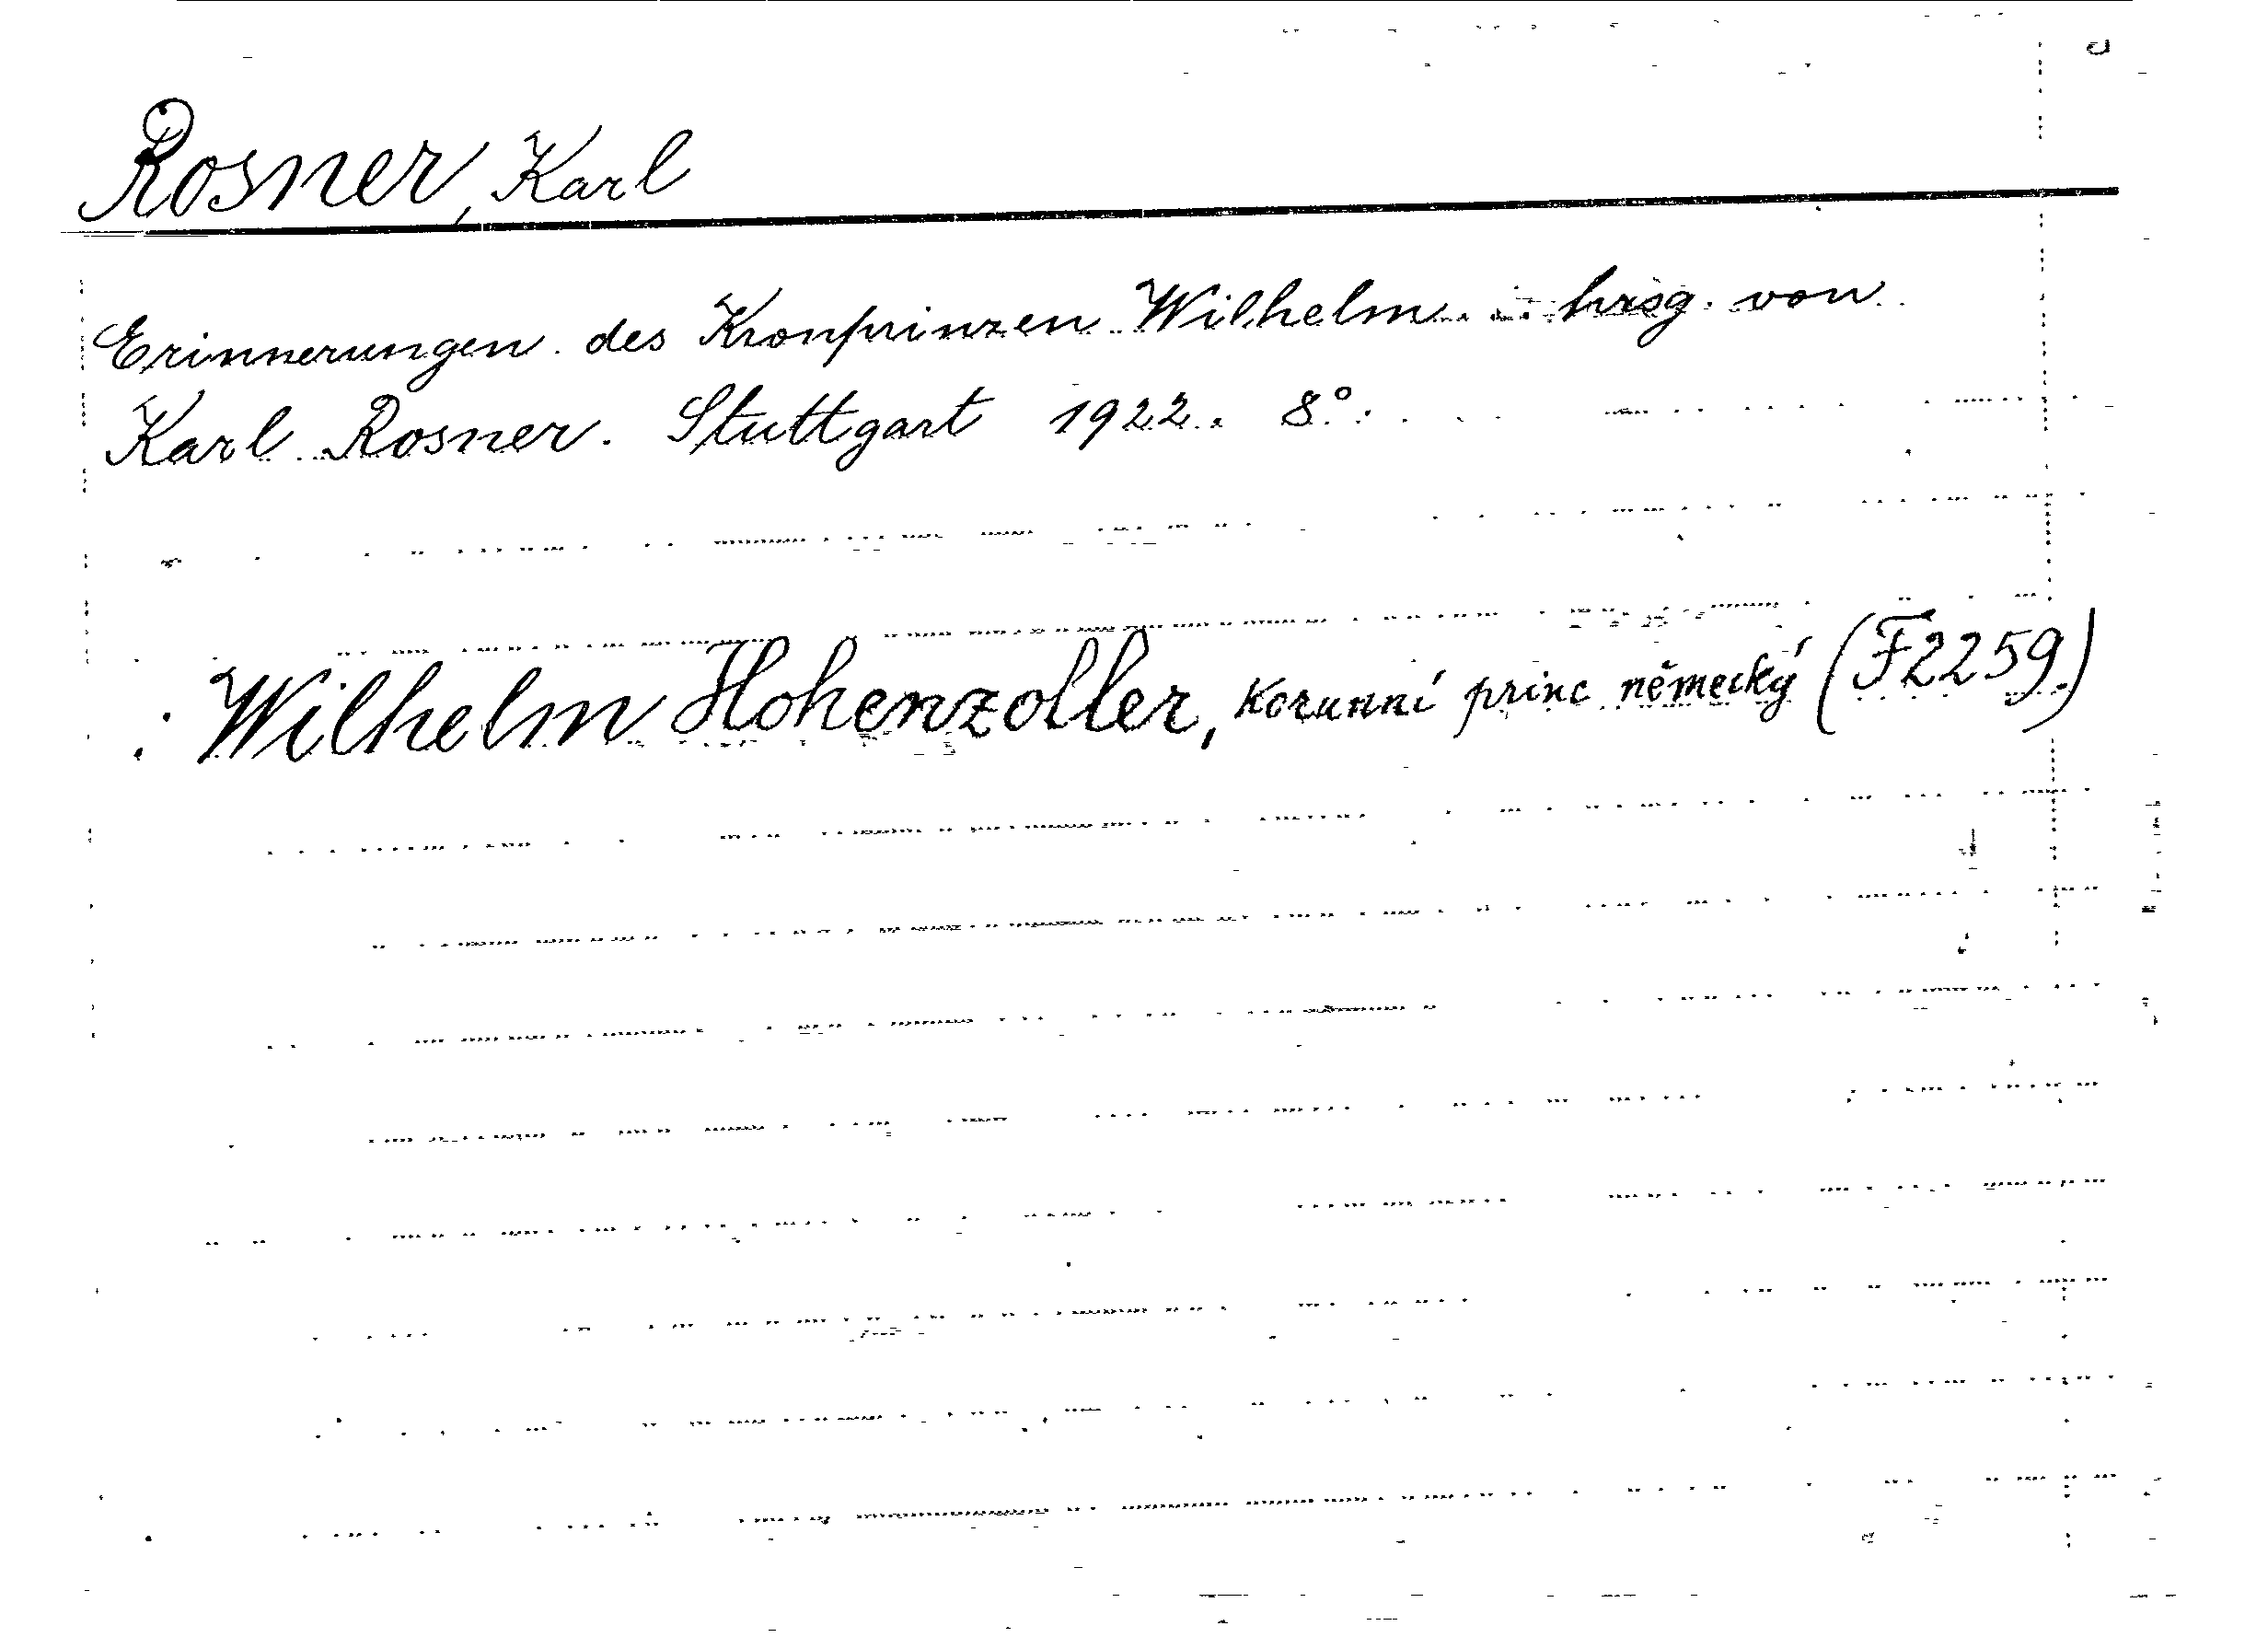 Rosner, Karl
Erinnerungen des Kronprinzen Wilhelm ... hrsg. von
Karl Rosner. Stuttgart 1922. 8°.
: Wilhelm Hohenzoller, korunní princ německý (F2259)